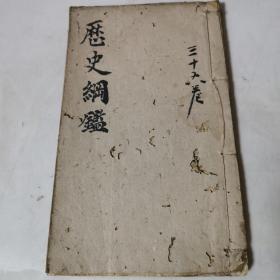 歷史綱鑑
三十六卷